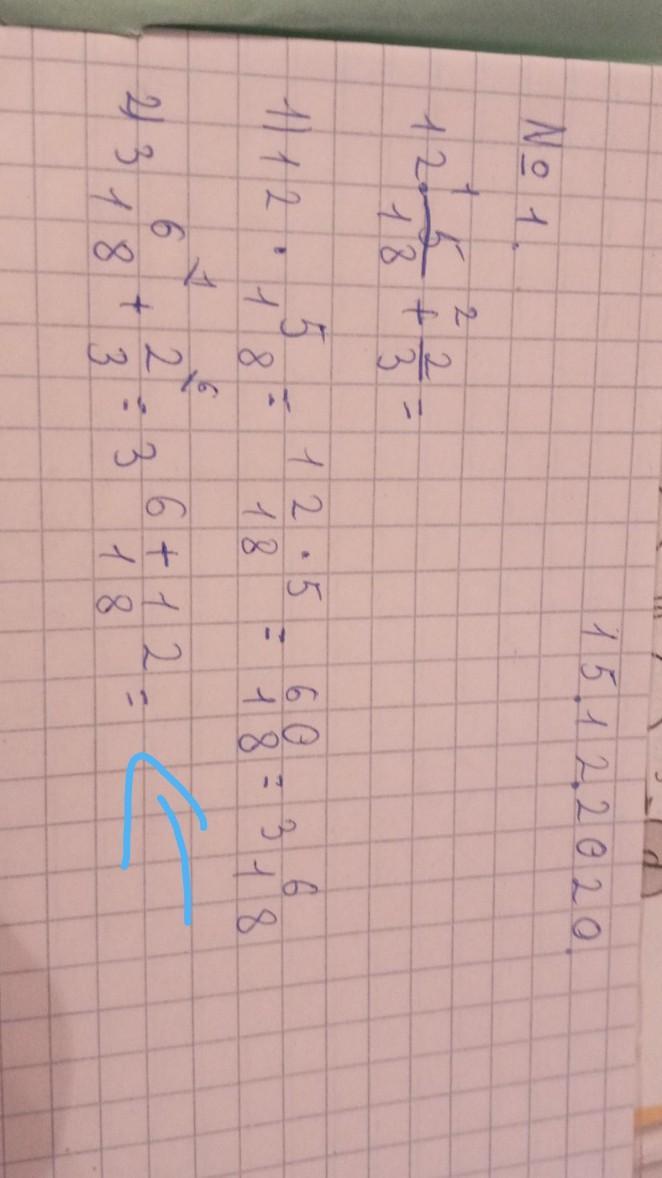 15.12.2020.
№1.
1 2
12 · 5/18 + 2/3 =
1) 12 · 5/18 = 12·5/18 = 60/18 = 3 6/18
2) 3 6\1/18 + 2\6/3 = 3 6+12/18 =